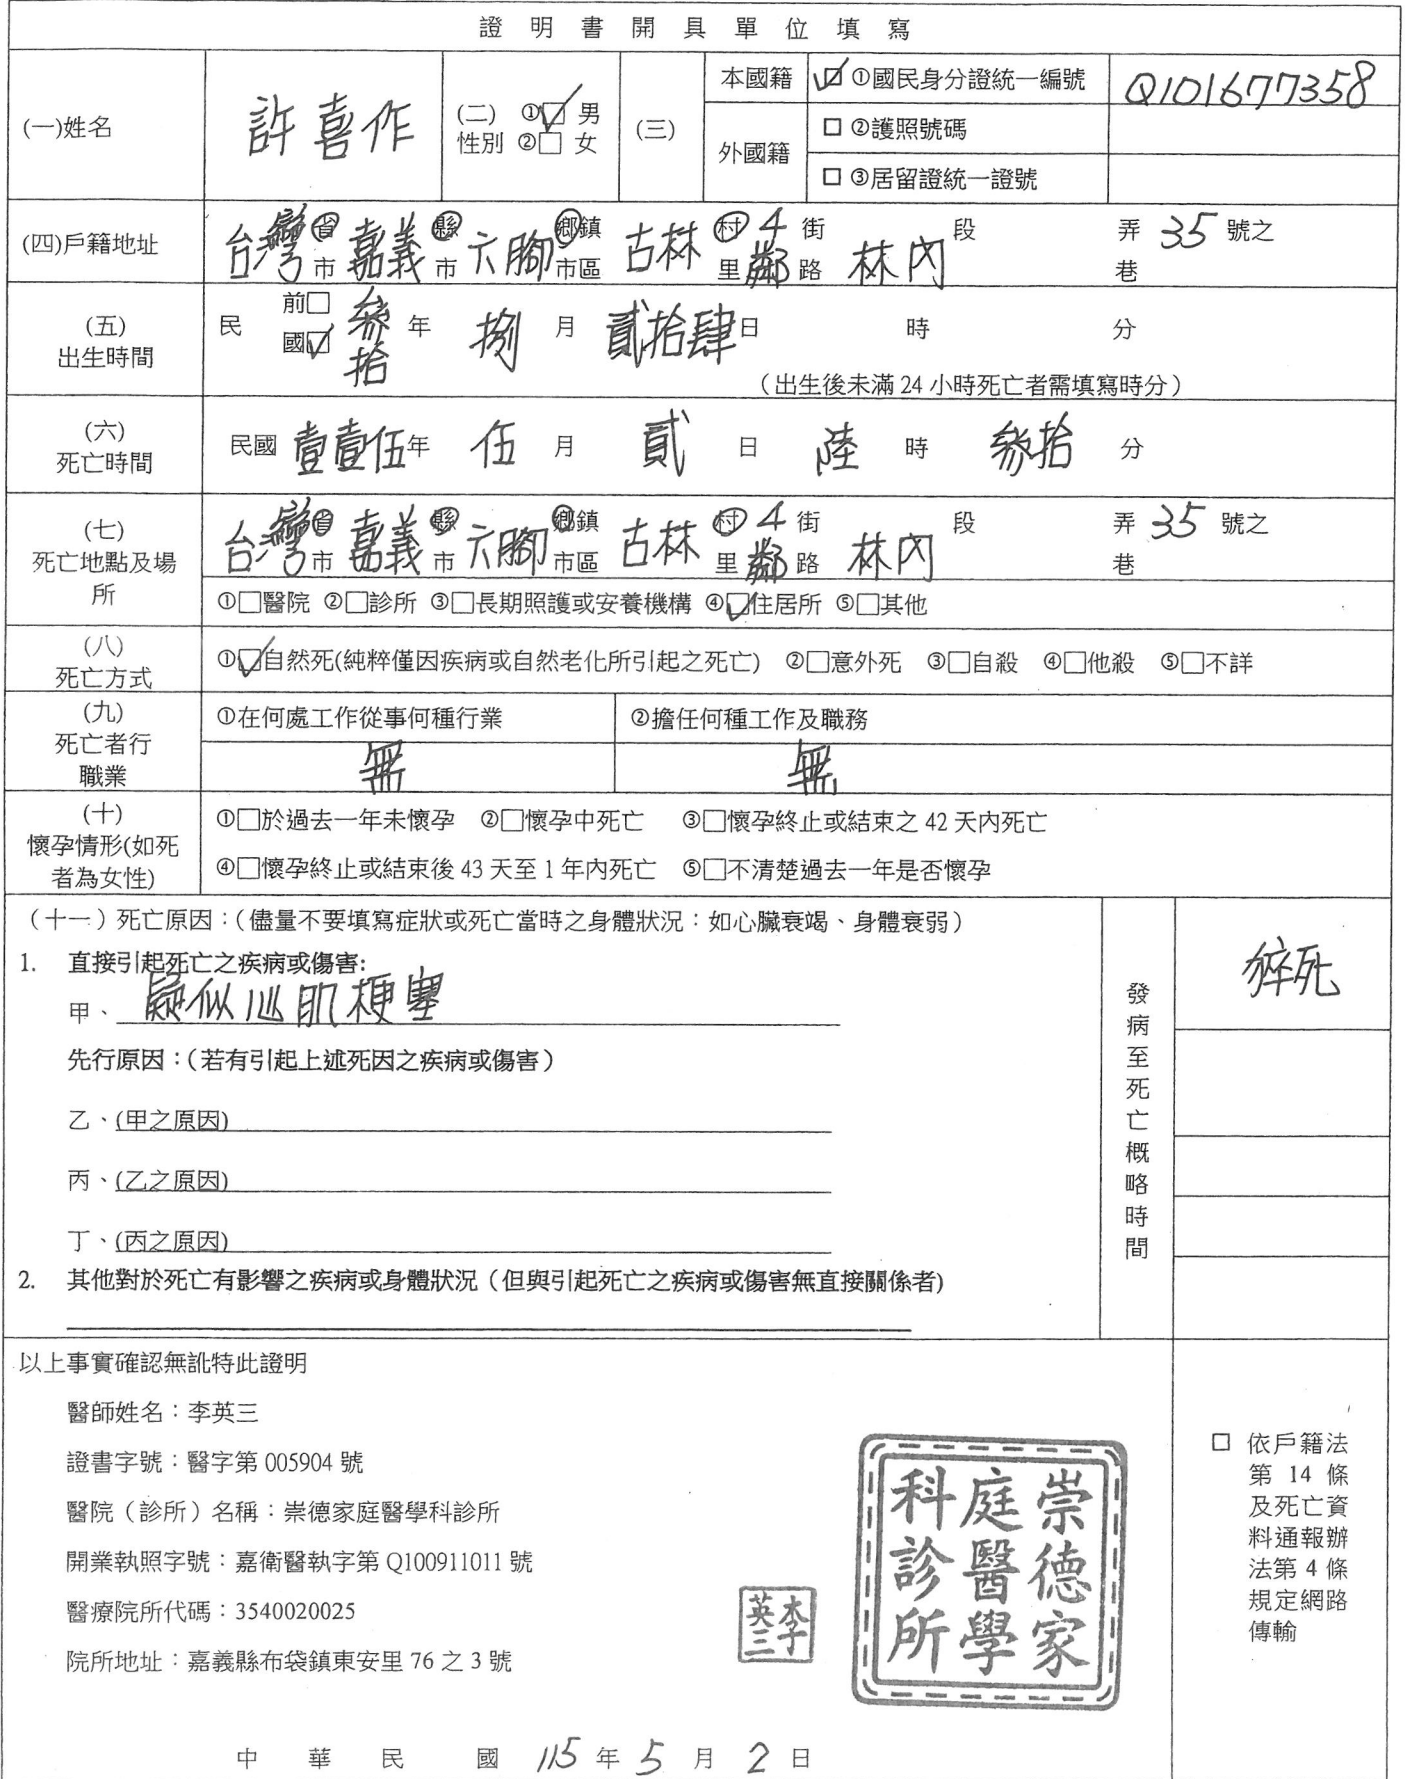 證明書開具單位填寫
(一)姓名 許喜作 (二)性別 ①☑男 ②□女 (三) 本國籍 ☑①國民身分證統一編號 Q101677358
外國籍 □②護照號碼
□③居留證統一證號
(四)戶籍地址 台灣省市 嘉義縣市 六腳鄉鎮市區 古林村里 4鄰 街路 林內 段 弄巷 35 號之
(五)出生時間 民 前□ 國☑ 參拾年 捌月 貳拾肆日 時 分
(出生後未滿24小時死亡者需填寫時分)
(六)死亡時間 民國 壹壹伍年 伍月 貳日 陸時 參拾分
(七)死亡地點及場所 台灣省市 嘉義縣市 六腳鄉鎮市區 古林村里 4鄰 街路 林內 段 弄巷 35 號之
①□醫院 ②□診所 ③□長期照護或安養機構 ④☑住居所 ⑤□其他
(八)死亡方式 ①☑自然死(純粹僅因疾病或自然老化所引起之死亡) ②□意外死 ③□自殺 ④□他殺 ⑤□不詳
(九)死亡者行職業 ①在何處工作從事何種行業 ②擔任何種工作及職務
無 無
(十)懷孕情形(如死者為女性) ①□於過去一年未懷孕 ②□懷孕中死亡 ③□懷孕終止或結束之42天內死亡
④□懷孕終止或結束後43天至1年內死亡 ⑤□不清楚過去一年是否懷孕
(十一)死亡原因:(儘量不要填寫症狀或死亡當時之身體狀況:如心臟衰竭、身體衰弱)
1. 直接引起死亡之疾病或傷害:
甲、疑似心肌梗塞
發病至死亡概略時間
猝死
先行原因:(若有引起上述死因之疾病或傷害)
乙、(甲之原因)
丙、(乙之原因)
丁、(丙之原因)
2. 其他對於死亡有影響之疾病或身體狀況(但與引起死亡之疾病或傷害無直接關係者)
以上事實確認無訛特此證明
醫師姓名:李英三
證書字號:醫字第005904號
醫院(診所)名稱:崇德家庭醫學科診所
開業執照字號:嘉衛醫執字第Q100911011號
醫療院所代碼:3540020025
院所地址:嘉義縣布袋鎮東安里76之3號
李英三
崇德家庭醫學科診所
□ 依戶籍法
第 14 條
及死亡資
料通報辦
法第 4 條
規定網路
傳輸
中華民國 115年5月2日